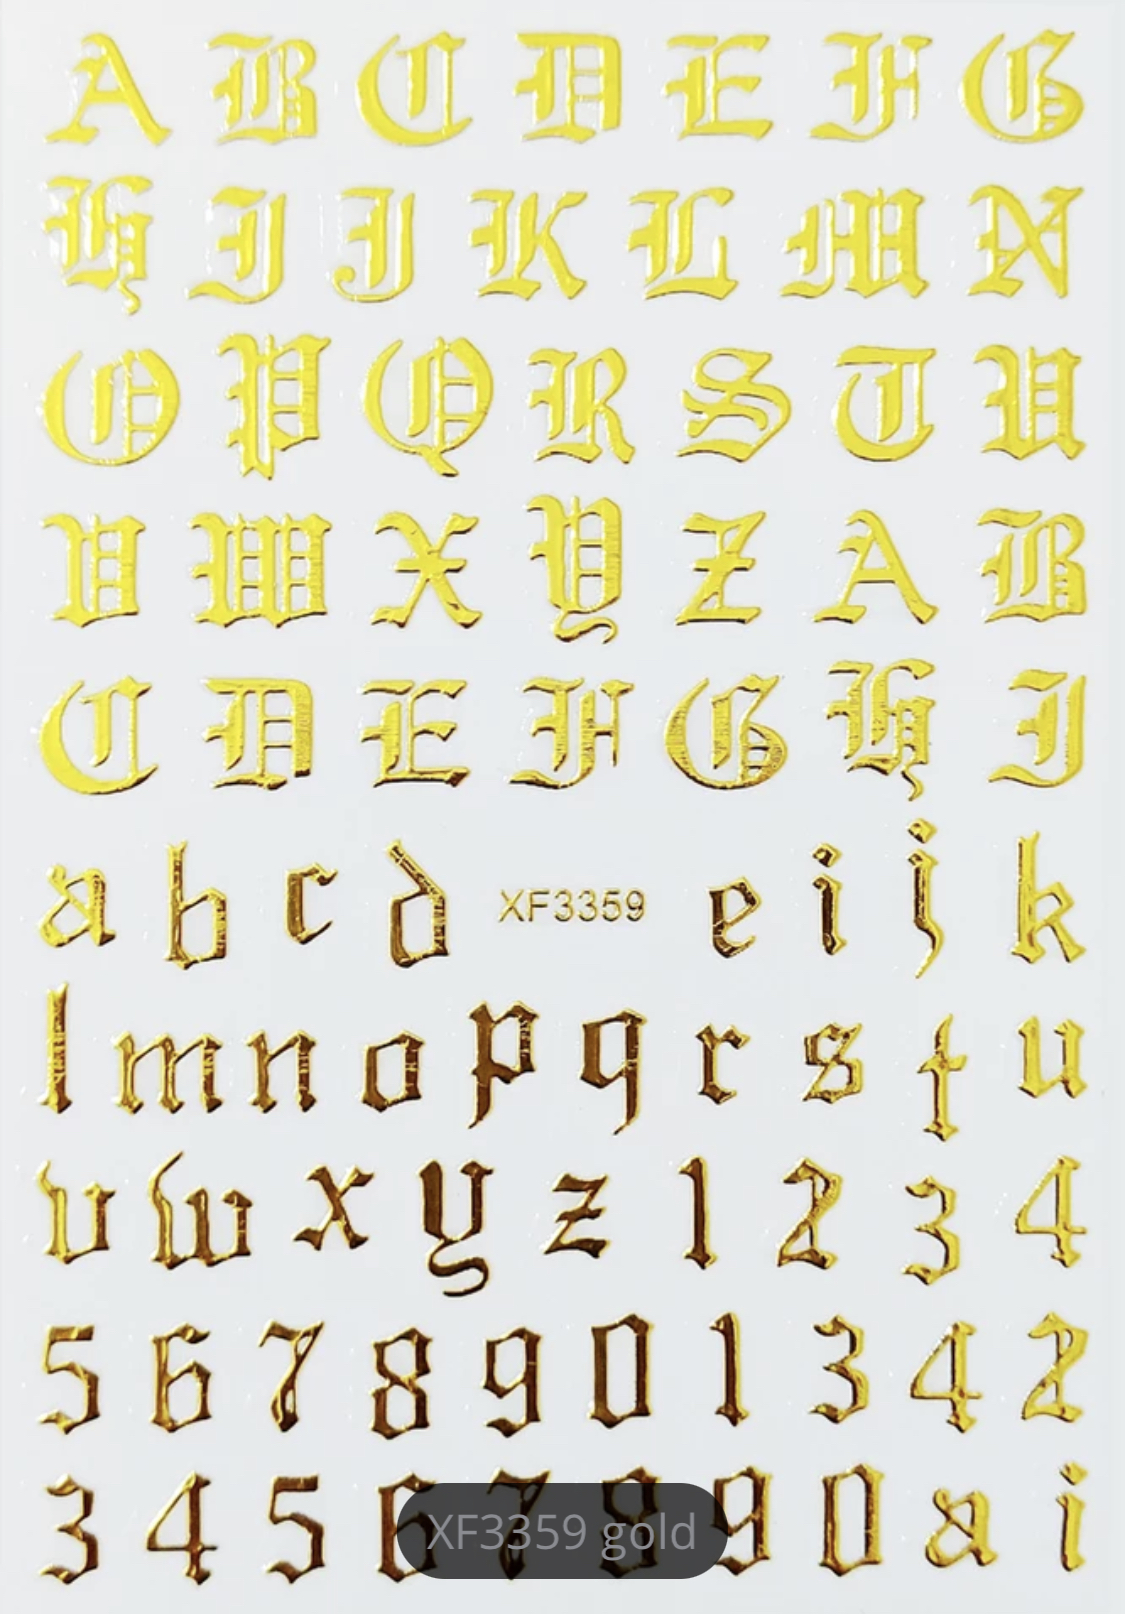 A B C D E F G
H I J K L M N
O P Q R S T U
V W X Y Z A B
C D E F G H I
a b c d XF3359 e i j k
l m n o p q r s t u
v w x y z 1 2 3 4
5 6 7 8 9 0 1 3 4 2
3 4 5 6 7 8 9 0 a i
XF3359 gold